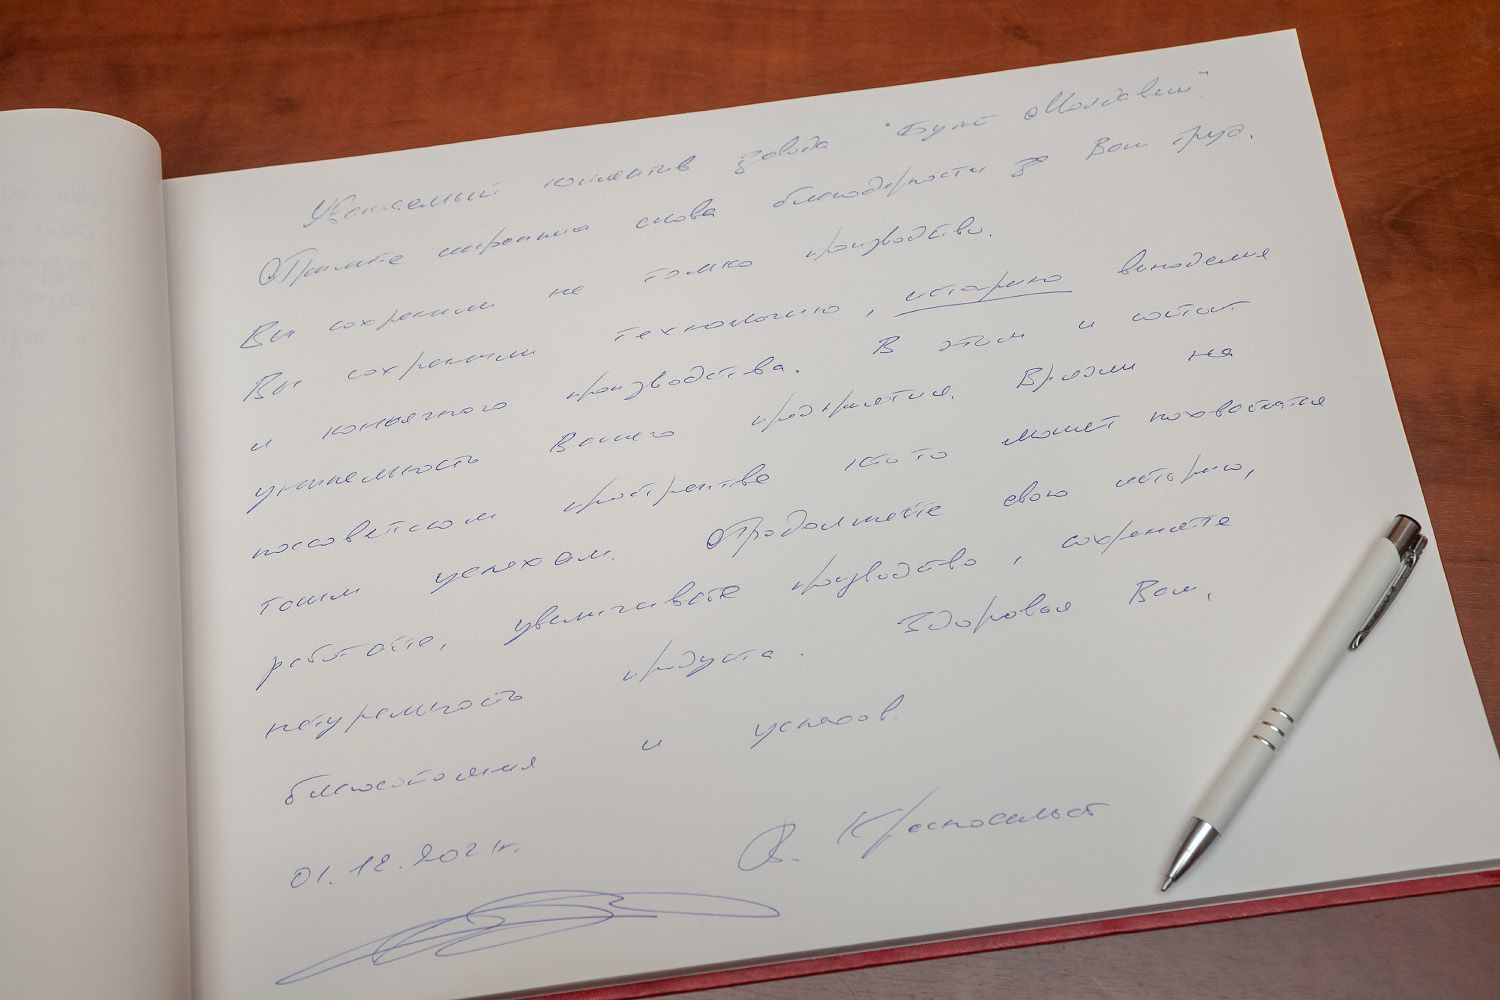 Уважаемый коллектив завода "Букет Молдавии"
Примите искренние слова благодарности за Ваш труд.
Вы сохранили не только производство.
Вы сохранили технологию, историю виноделия
и коньячного производства. В этом и состоит
уникальность Вашего предприятия. Врядли на
постсоветском пространстве кто то может похвастатся
таким успехом. Продолжайте свою историю,
работайте, увеличивайте производство, сохраняйте
натуральность продукта. Здоровья Вам,
благосостояния и успехов.
01.12.2021г.
В. Красносельский